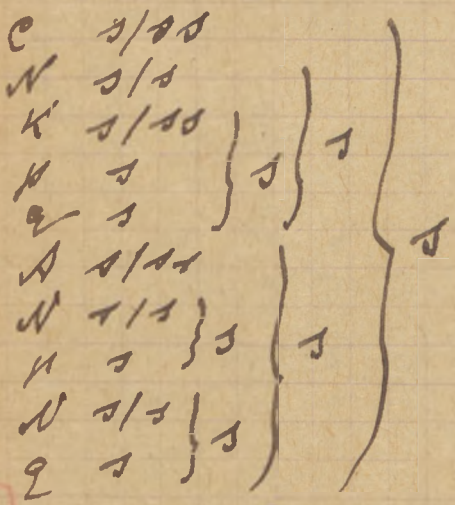 C s/ss
N s/s
K s/ss
p s } s } s
q s
A s/ss } s
N s/s
p s } s } s
N s/s
q s } s